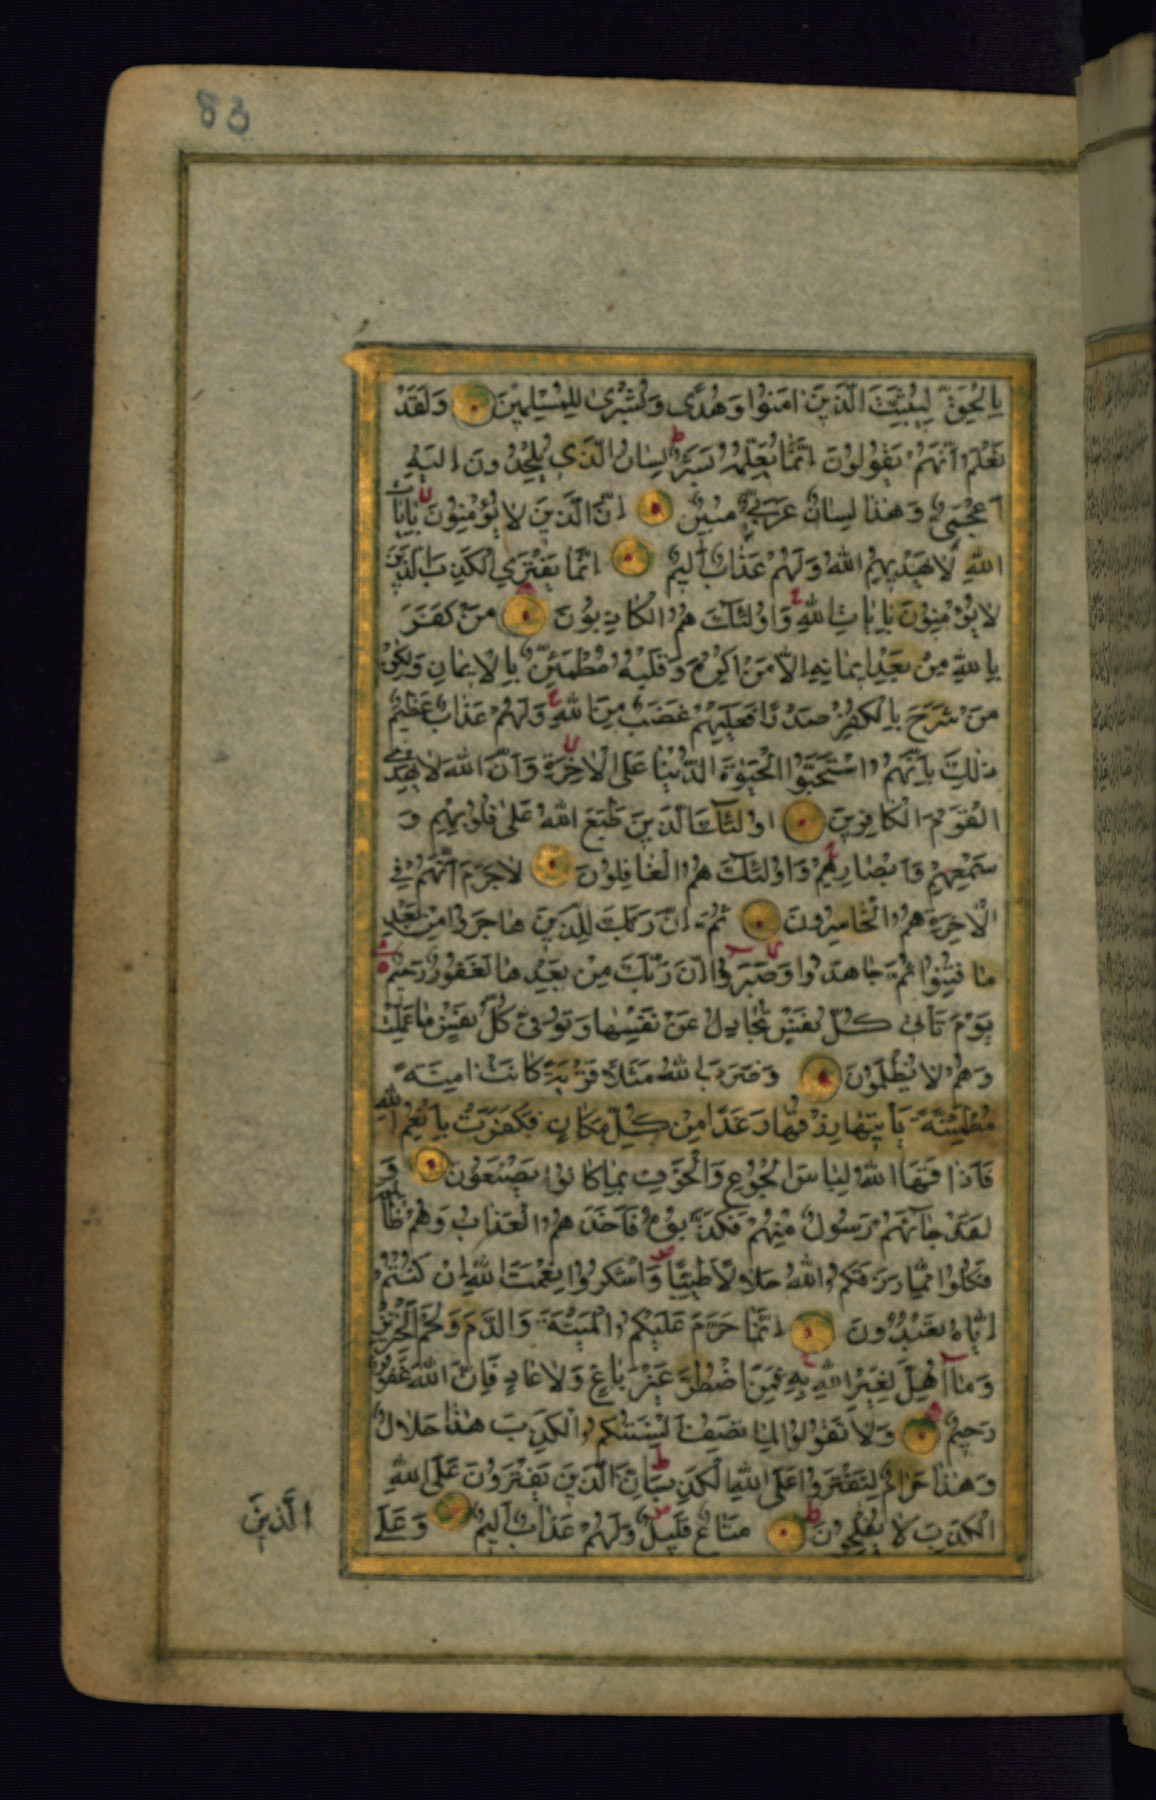 83
بِالْحَقِّ لِيُثَبِّتَ الَّذِينَ اٰمَنُوا وَهُدًى وَبُشْرٰى لِلْمُسْلِمِينَ وَلَقَدْ
نَعْلَمُ اَنَّهُمْ يَقُولُونَ اِنَّمَا يُعَلِّمُهُ بَشَرٌ ط لِسَانُ الَّذِي يُلْحِدُونَ اِلَيْهِ
اَعْجَمِيٌّ وَهٰذَا لِسَانٌ عَرَبِيٌّ مُبِينٌ اِنَّ الَّذِينَ لَا يُؤْمِنُونَ بِاٰيَاتِ
اللّٰهِ لَا يَهْدِيهِمُ اللّٰهُ وَلَهُمْ عَذَابٌ اَلِيمٌ اِنَّمَا يَفْتَرِي الْكَذِبَ الَّذِينَ
لَا يُؤْمِنُونَ بِاٰيَاتِ اللّٰهِ ج وَاُولٰئِكَ هُمُ الْكَاذِبُونَ مَنْ كَفَرَ
بِاللّٰهِ مِنْ بَعْدِ اِيمَانِهِ اِلَّا مَنْ اُكْرِهَ وَقَلْبُهُ مُطْمَئِنٌّ بِالْاِيمَانِ وَلٰكِنْ
مَنْ شَرَحَ بِالْكُفْرِ صَدْرًا فَعَلَيْهِمْ غَضَبٌ مِنَ اللّٰهِ ج وَلَهُمْ عَذَابٌ عَظِيمٌ
ذٰلِكَ بِاَنَّهُمُ اسْتَحَبُّوا الْحَيٰوةَ الدُّنْيَا عَلَى الْاٰخِرَةِ لا وَاَنَّ اللّٰهَ لَا يَهْدِي
الْقَوْمَ الْكَافِرِينَ اُولٰئِكَ الَّذِينَ طَبَعَ اللّٰهُ عَلٰى قُلُوبِهِمْ وَ
سَمْعِهِمْ وَاَبْصَارِهِمْ ج وَاُولٰئِكَ هُمُ الْغَافِلُونَ لَا جَرَمَ اَنَّهُمْ فِي
الْاٰخِرَةِ هُمُ الْخَاسِرُونَ ثُمَّ اِنَّ رَبَّكَ لِلَّذِينَ هَاجَرُوا مِنْ بَعْدِ
مَا فُتِنُوا ثُمَّ جَاهَدُوا وَصَبَرُوا لا اِنَّ رَبَّكَ مِنْ بَعْدِهَا لَغَفُورٌ رَحِيمٌ
يَوْمَ تَأْتِي كُلُّ نَفْسٍ تُجَادِلُ عَنْ نَفْسِهَا وَتُوَفّٰى كُلُّ نَفْسٍ مَا عَمِلَتْ
وَهُمْ لَا يُظْلَمُونَ وَضَرَبَ اللّٰهُ مَثَلًا قَرْيَةً كَانَتْ اٰمِنَةً
مُطْمَئِنَّةً يَأْتِيهَا رِزْقُهَا رَغَدًا مِنْ كُلِّ مَكَانٍ فَكَفَرَتْ بِاَنْعُمِ اللّٰهِ
فَاَذَاقَهَا اللّٰهُ لِبَاسَ الْجُوعِ وَالْخَوْفِ بِمَا كَانُوا يَصْنَعُونَ وَ
لَقَدْ جَاءَهُمْ رَسُولٌ مِنْهُمْ فَكَذَّبُوهُ فَاَخَذَهُمُ الْعَذَابُ وَهُمْ ظَالِمُونَ
فَكُلُوا مِمَّا رَزَقَكُمُ اللّٰهُ حَلَالًا طَيِّبًا ص وَاشْكُرُوا نِعْمَتَ اللّٰهِ اِنْ كُنْتُمْ
اِيَّاهُ تَعْبُدُونَ اِنَّمَا حَرَّمَ عَلَيْكُمُ الْمَيْتَةَ وَالدَّمَ وَلَحْمَ الْخِنْزِيرِ
وَمَا اُهِلَّ لِغَيْرِ اللّٰهِ بِهِ ج فَمَنِ اضْطُرَّ غَيْرَ بَاغٍ وَلَا عَادٍ فَاِنَّ اللّٰهَ غَفُورٌ
رَحِيمٌ وَلَا تَقُولُوا لِمَا تَصِفُ اَلْسِنَتُكُمُ الْكَذِبَ هٰذَا حَلَالٌ
وَهٰذَا حَرَامٌ لِتَفْتَرُوا عَلَى اللّٰهِ الْكَذِبَ ط اِنَّ الَّذِينَ يَفْتَرُونَ عَلَى اللّٰهِ
الْكَذِبَ لَا يُفْلِحُونَ ط مَتَاعٌ قَلِيلٌ ص وَلَهُمْ عَذَابٌ اَلِيمٌ وَعَلَى
الَّذِينَ